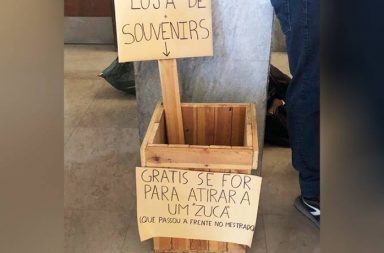 LOJA DE
SOUVENIRS
GRÁTIS SE FOR
PARA ATIRAR A
UM "ZUCA"
(QUE PASSOU À FRENTE NO MESTRADO)